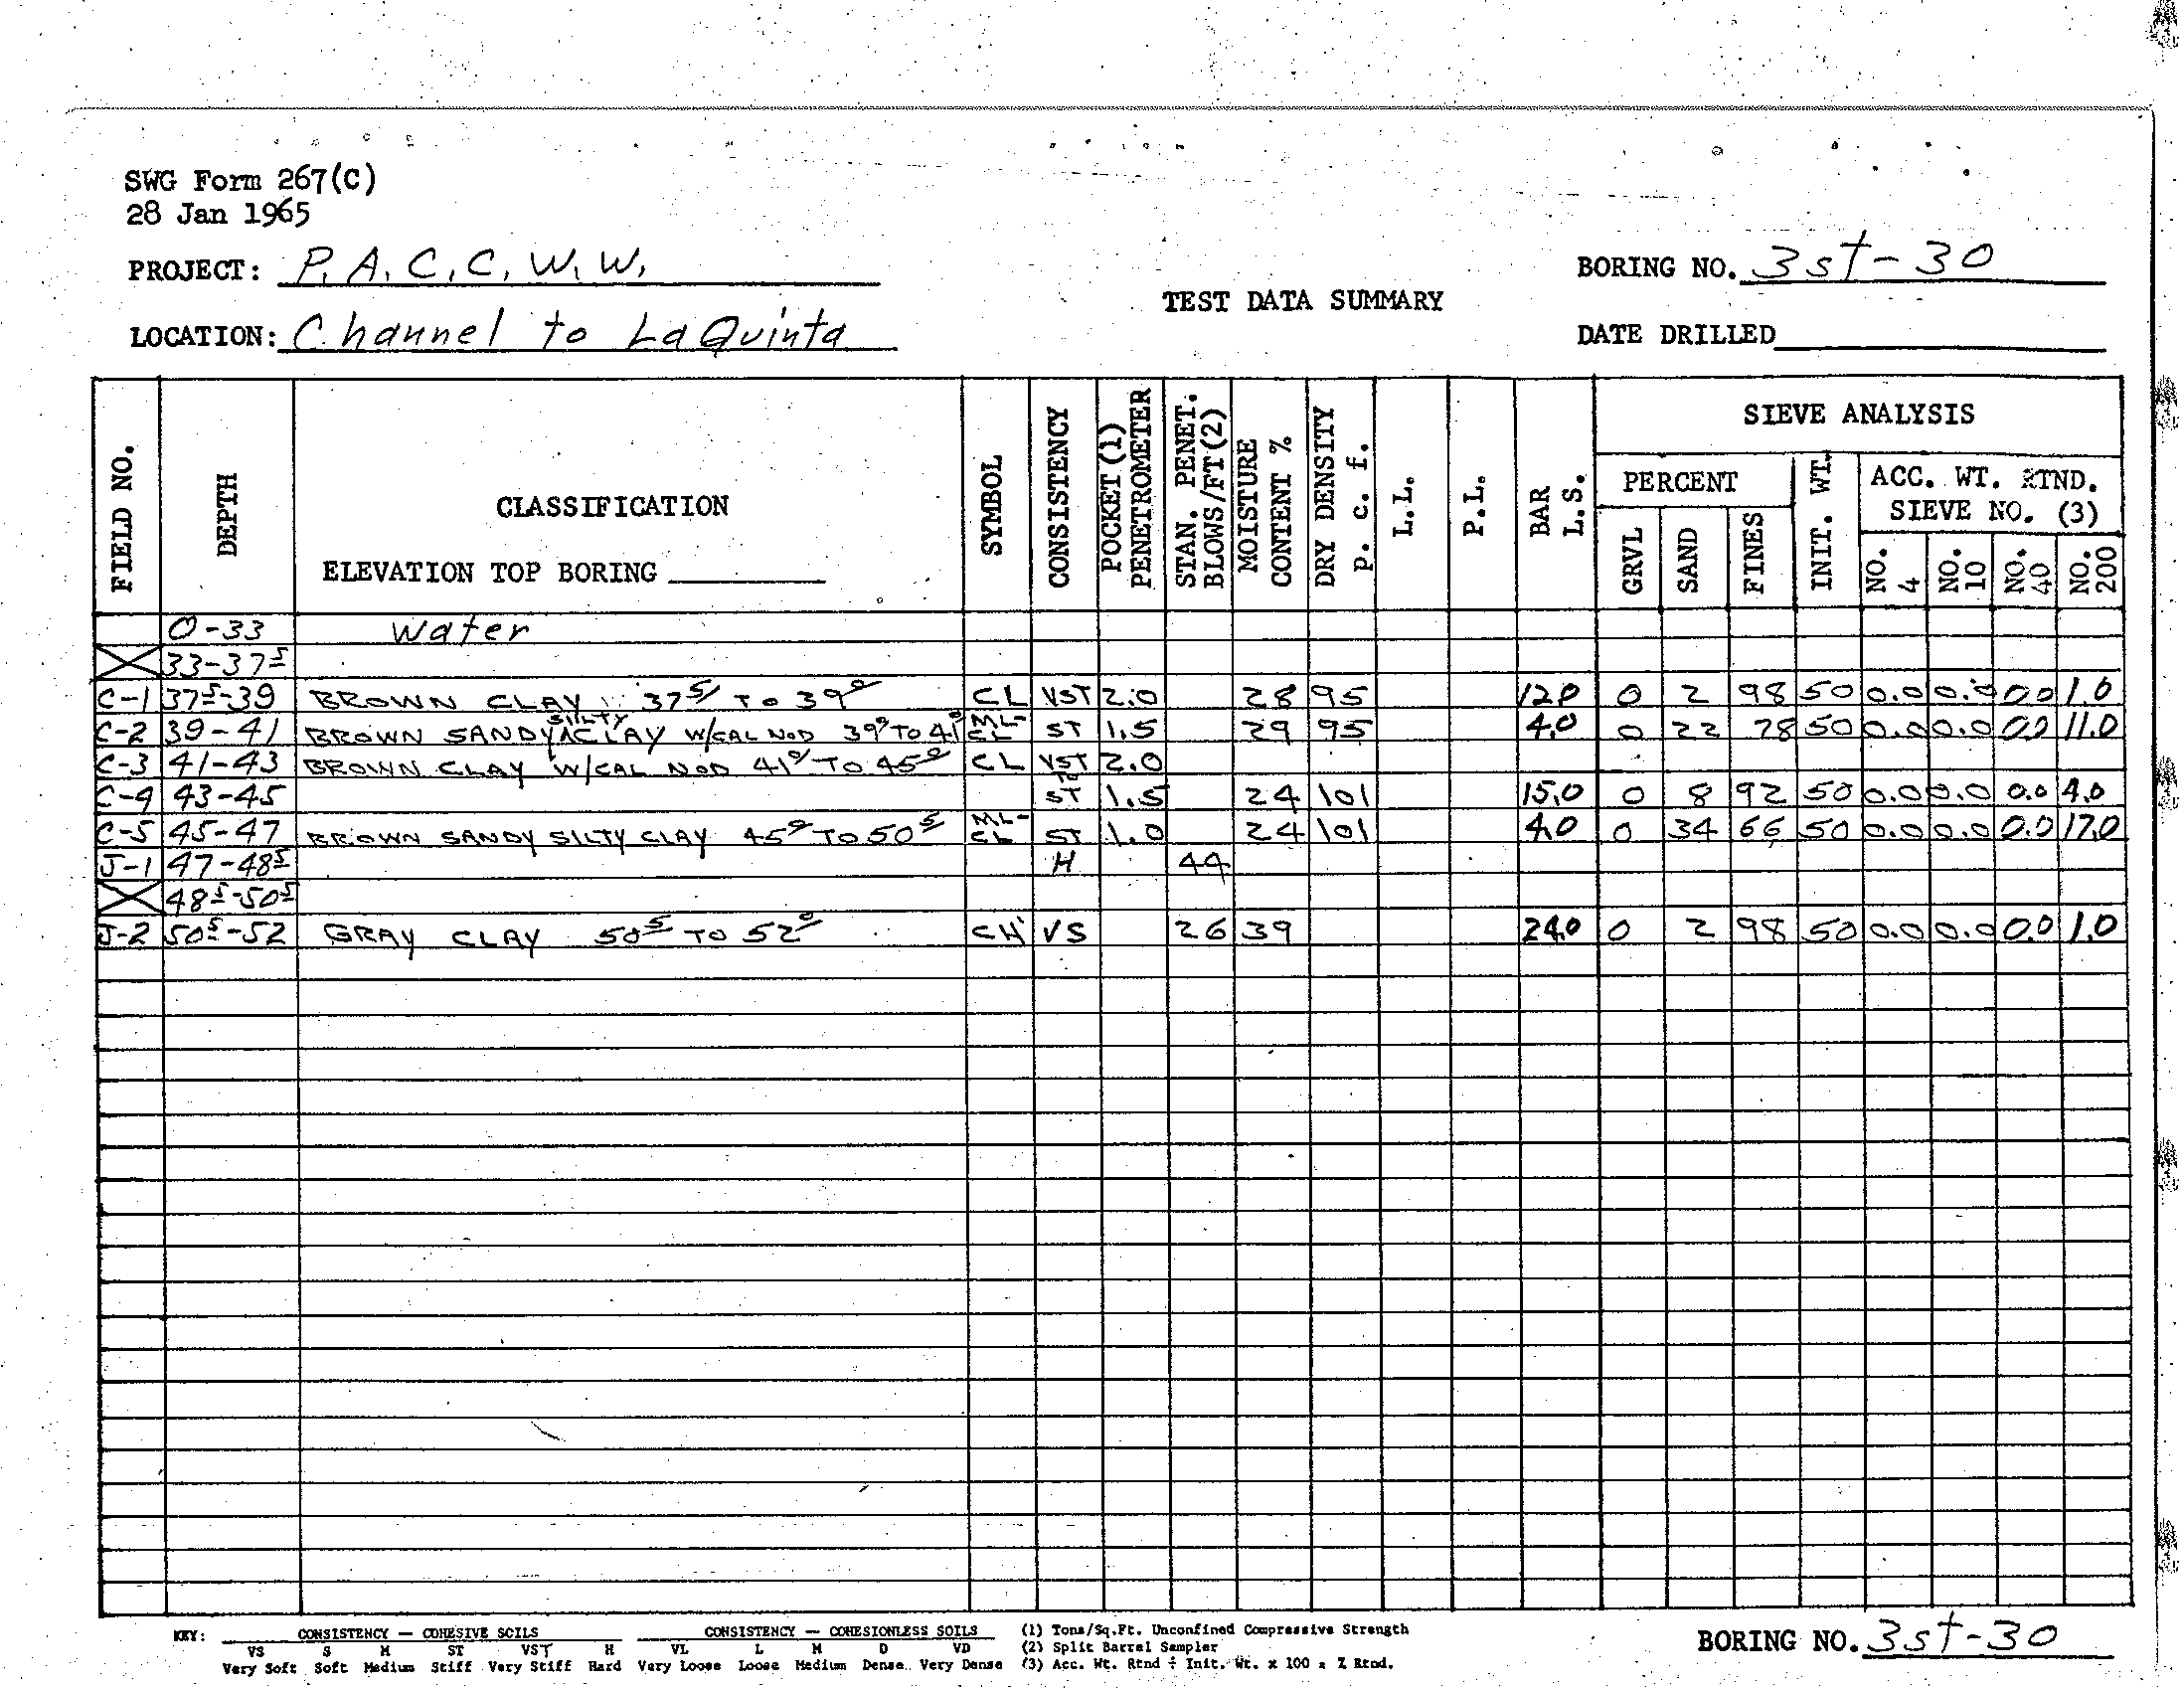 SWG Form 267(C)
28 Jan 1965
PROJECT: P.A.C.C.W.W.
BORING NO. 3st-30
TEST DATA SUMMARY
LOCATION: Channel to La Quinta
DATE DRILLED
FIELD NO. DEPTH CLASSIFICATION SYMBOL CONSISTENCY POCKET (1) PENETROMETER STAN. PENET. BLOWS/FT(2) MOISTURE CONTENT % DRY DENSITY P. c. f. L.L. P.L. BAR L.S. SIEVE ANALYSIS
PERCENT INIT. WT. ACC. WT. RTND. SIEVE NO. (3)
ELEVATION TOP BORING
GRVL SAND FINES NO. 4 NO. 10 NO. 40 NO. 200
0-33 Water
33-37⁵
C-1 37⁵-39 BROWN CLAY 37⁵ TO 39⁰ CL VST 2.0 28 95 12.0 0 2 98 50 0.0 0.0 0.0 1.0
C-2 39-41 BROWN SANDY SILTY CLAY W/CAL NOD 39⁰ TO 41⁰ ML-CL ST 1.5 29 95 4.0 0 22 78 50 0.0 0.0 0.0 11.0
C-3 41-43 BROWN CLAY W/CAL NOD 41⁰ TO 45⁰ CL VST 2.0
TO
C-4 43-45 ST 1.5 24 101 15.0 0 8 92 50 0.0 0.0 0.0 4.0
C-5 45-47 BROWN SANDY SILTY CLAY 45⁰ TO 50⁵ ML-CL ST 1.0 24 101 4.0 0 34 66 50 0.0 0.0 0.0 17.0
J-1 47-48⁵ H 44
48⁵-50⁵
J-2 50⁵-52 GRAY CLAY 50⁵ TO 52⁰ CH VS 26 39 24.0 0 2 98 50 0.0 0.0 0.0 1.0
KEY: CONSISTENCY — COHESIVE SOILS CONSISTENCY — COHESIONLESS SOILS (1) Tons/Sq.Ft. Unconfined Compressive Strength
VS S M ST VST H VL L M D VD (2) Split Barrel Sampler
Very Soft Soft Medium Stiff Very Stiff Hard Very Loose Loose Medium Dense Very Dense (3) Acc. Wt. Rtnd ÷ Init. Wt. x 100 = % Rtnd.
BORING NO. 3st-30